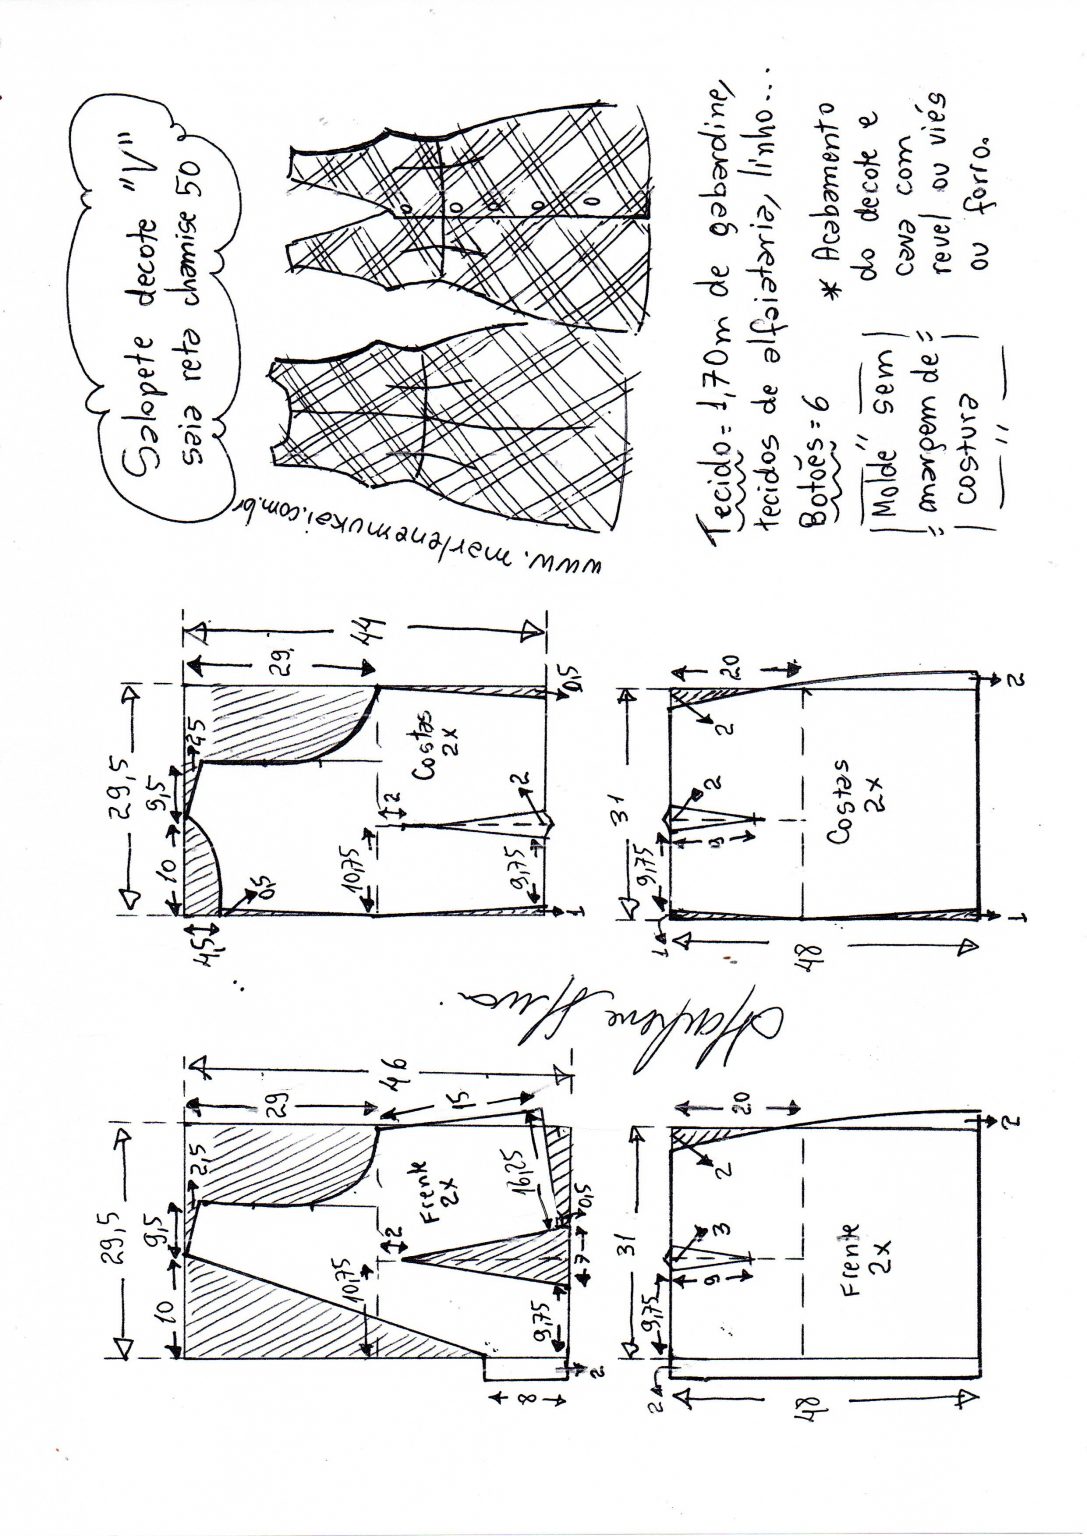 Salopete decote "V"
saia reta chamise 50
www.marlenemukai.com.br
Tecido = 1,70m de gabardine,
tecidos de alfaiataria, linho...
Botões = 6
Molde sem
margem de
costura
* Acabamento
do decote e
cava com
revel ou viés
ou forro.
29,5
10
9,5
2,5
29
46
15
Frente
2x
10,75
2
16,25
0,5
7
9,75
8
2
29,5
10
9,5
2,5
4,5
0,5
29
44
Costas
2x
10,75
2
9,75
2
0,5
1
Marlene Mukai
31
9,75
2
9
3
2
20
Frente
2x
48
2
31
9,75
1
9
2
2
20
Costas
2x
48
1
2